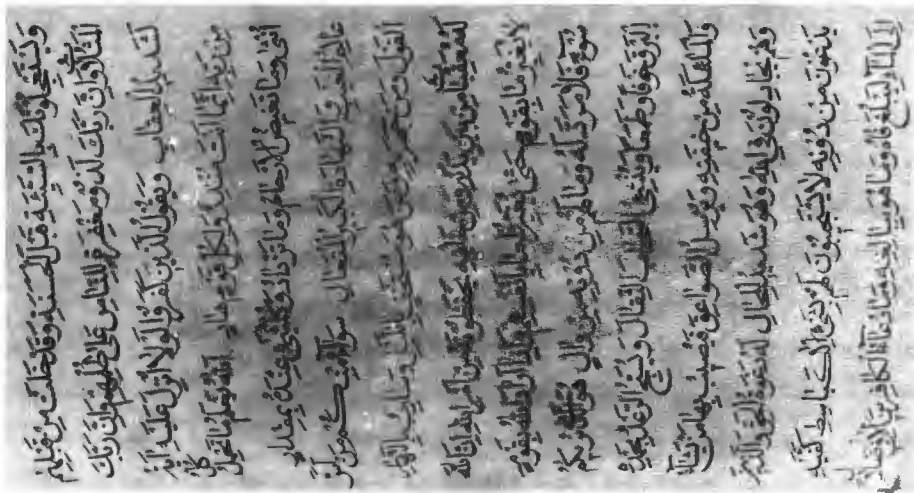 وَيَسْتَعْجِلُونَكَ بِالسَّيِّئَةِ قَبْلَ الْحَسَنَةِ وَقَدْ خَلَتْ مِنْ قَبْلِهِمُ
الْمَثُلَاتُ وَإِنَّ رَبَّكَ لَذُو مَغْفِرَةٍ لِلنَّاسِ عَلَى ظُلْمِهِمْ وَإِنَّ رَبَّكَ
لَشَدِيدُ الْعِقَابِ وَيَقُولُ الَّذِينَ كَفَرُوا لَوْلَا أُنْزِلَ عَلَيْهِ آيَةٌ
مِنْ رَبِّهِ إِنَّمَا أَنْتَ مُنْذِرٌ وَلِكُلِّ قَوْمٍ هَادٍ اللَّهُ يَعْلَمُ مَا تَحْمِلُ كُلُّ
أُنْثَى وَمَا تَغِيضُ الْأَرْحَامُ وَمَا تَزْدَادُ وَكُلُّ شَيْءٍ عِنْدَهُ بِمِقْدَارٍ
عَالِمُ الْغَيْبِ وَالشَّهَادَةِ الْكَبِيرُ الْمُتَعَالِ سَوَاءٌ مِنْكُمْ مَنْ أَسَرَّ
الْقَوْلَ وَمَنْ جَهَرَ بِهِ وَمَنْ هُوَ مُسْتَخْفٍ بِاللَّيْلِ وَسَارِبٌ بِالنَّهَارِ
لَهُ مُعَقِّبَاتٌ مِنْ بَيْنِ يَدَيْهِ وَمِنْ خَلْفِهِ يَحْفَظُونَهُ مِنْ أَمْرِ اللَّهِ إِنَّ اللَّهَ
لَا يُغَيِّرُ مَا بِقَوْمٍ حَتَّى يُغَيِّرُوا مَا بِأَنْفُسِهِمْ وَإِذَا أَرَادَ اللَّهُ بِقَوْمٍ
سُوءًا فَلَا مَرَدَّ لَهُ وَمَا لَهُمْ مِنْ دُونِهِ مِنْ وَالٍ هُوَ الَّذِي يُرِيكُمُ
الْبَرْقَ خَوْفًا وَطَمَعًا وَيُنْشِئُ السَّحَابَ الثِّقَالَ وَيُسَبِّحُ الرَّعْدُ بِحَمْدِهِ
وَالْمَلَائِكَةُ مِنْ خِيفَتِهِ وَيُرْسِلُ الصَّوَاعِقَ فَيُصِيبُ بِهَا مَنْ يَشَاءُ
وَهُمْ يُجَادِلُونَ فِي اللَّهِ وَهُوَ شَدِيدُ الْمِحَالِ لَهُ دَعْوَةُ الْحَقِّ وَالَّذِينَ
يَدْعُونَ مِنْ دُونِهِ لَا يَسْتَجِيبُونَ لَهُمْ بِشَيْءٍ إِلَّا كَبَاسِطِ كَفَّيْهِ
إِلَى الْمَاءِ لِيَبْلُغَ فَاهُ وَمَا هُوَ بِبَالِغِهِ وَمَا دُعَاءُ الْكَافِرِينَ إِلَّا فِي ضَلَالٍ